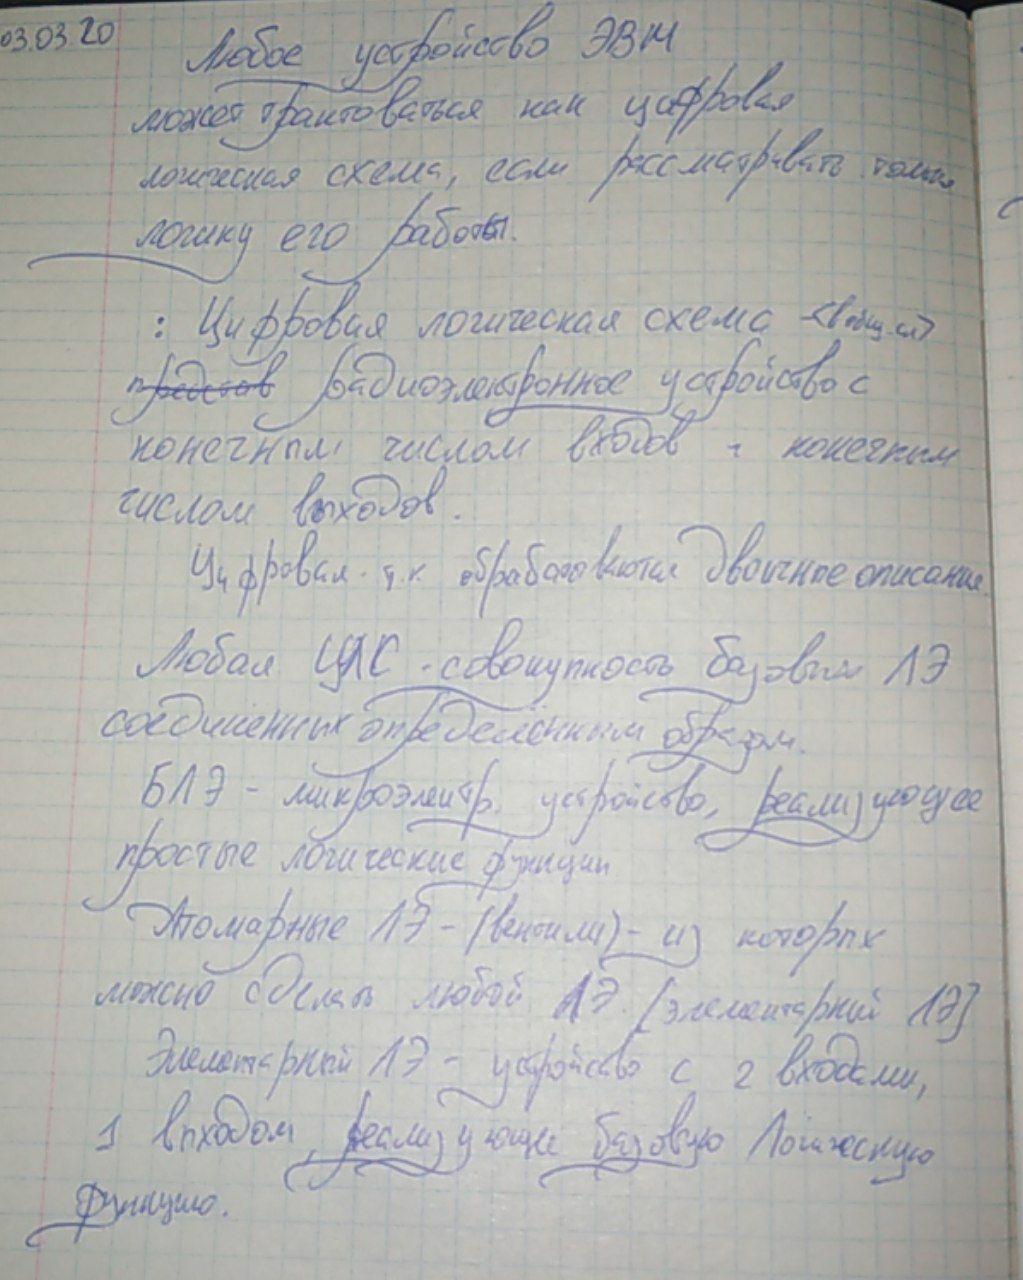 03.03.20
Любое устройство ЭВМ
может трактоваться как цифровая
логическая схема, если рассматривать только
логику его работы.
: Цифровая логическая схема <в общ. сл>
представ радиоэлектронное устройство с
конечным числом входов и конечным
числом выходов.
Цифровая т.к. обрабатываются двоичные описания.
Любая ЦЛС - совокупность базовых ЛЭ
соединённых определённым образом.
БЛЭ - микроэлектр. устройство, реализующее
простые логические функции
Атомарные ЛЭ - (вентили) - из которых
можно сделать любой ЛЭ. [элементарный ЛЭ]
ЛЭ - устройство с 2 входами,
1 выходом, реализующие базовую логическую
функцию.